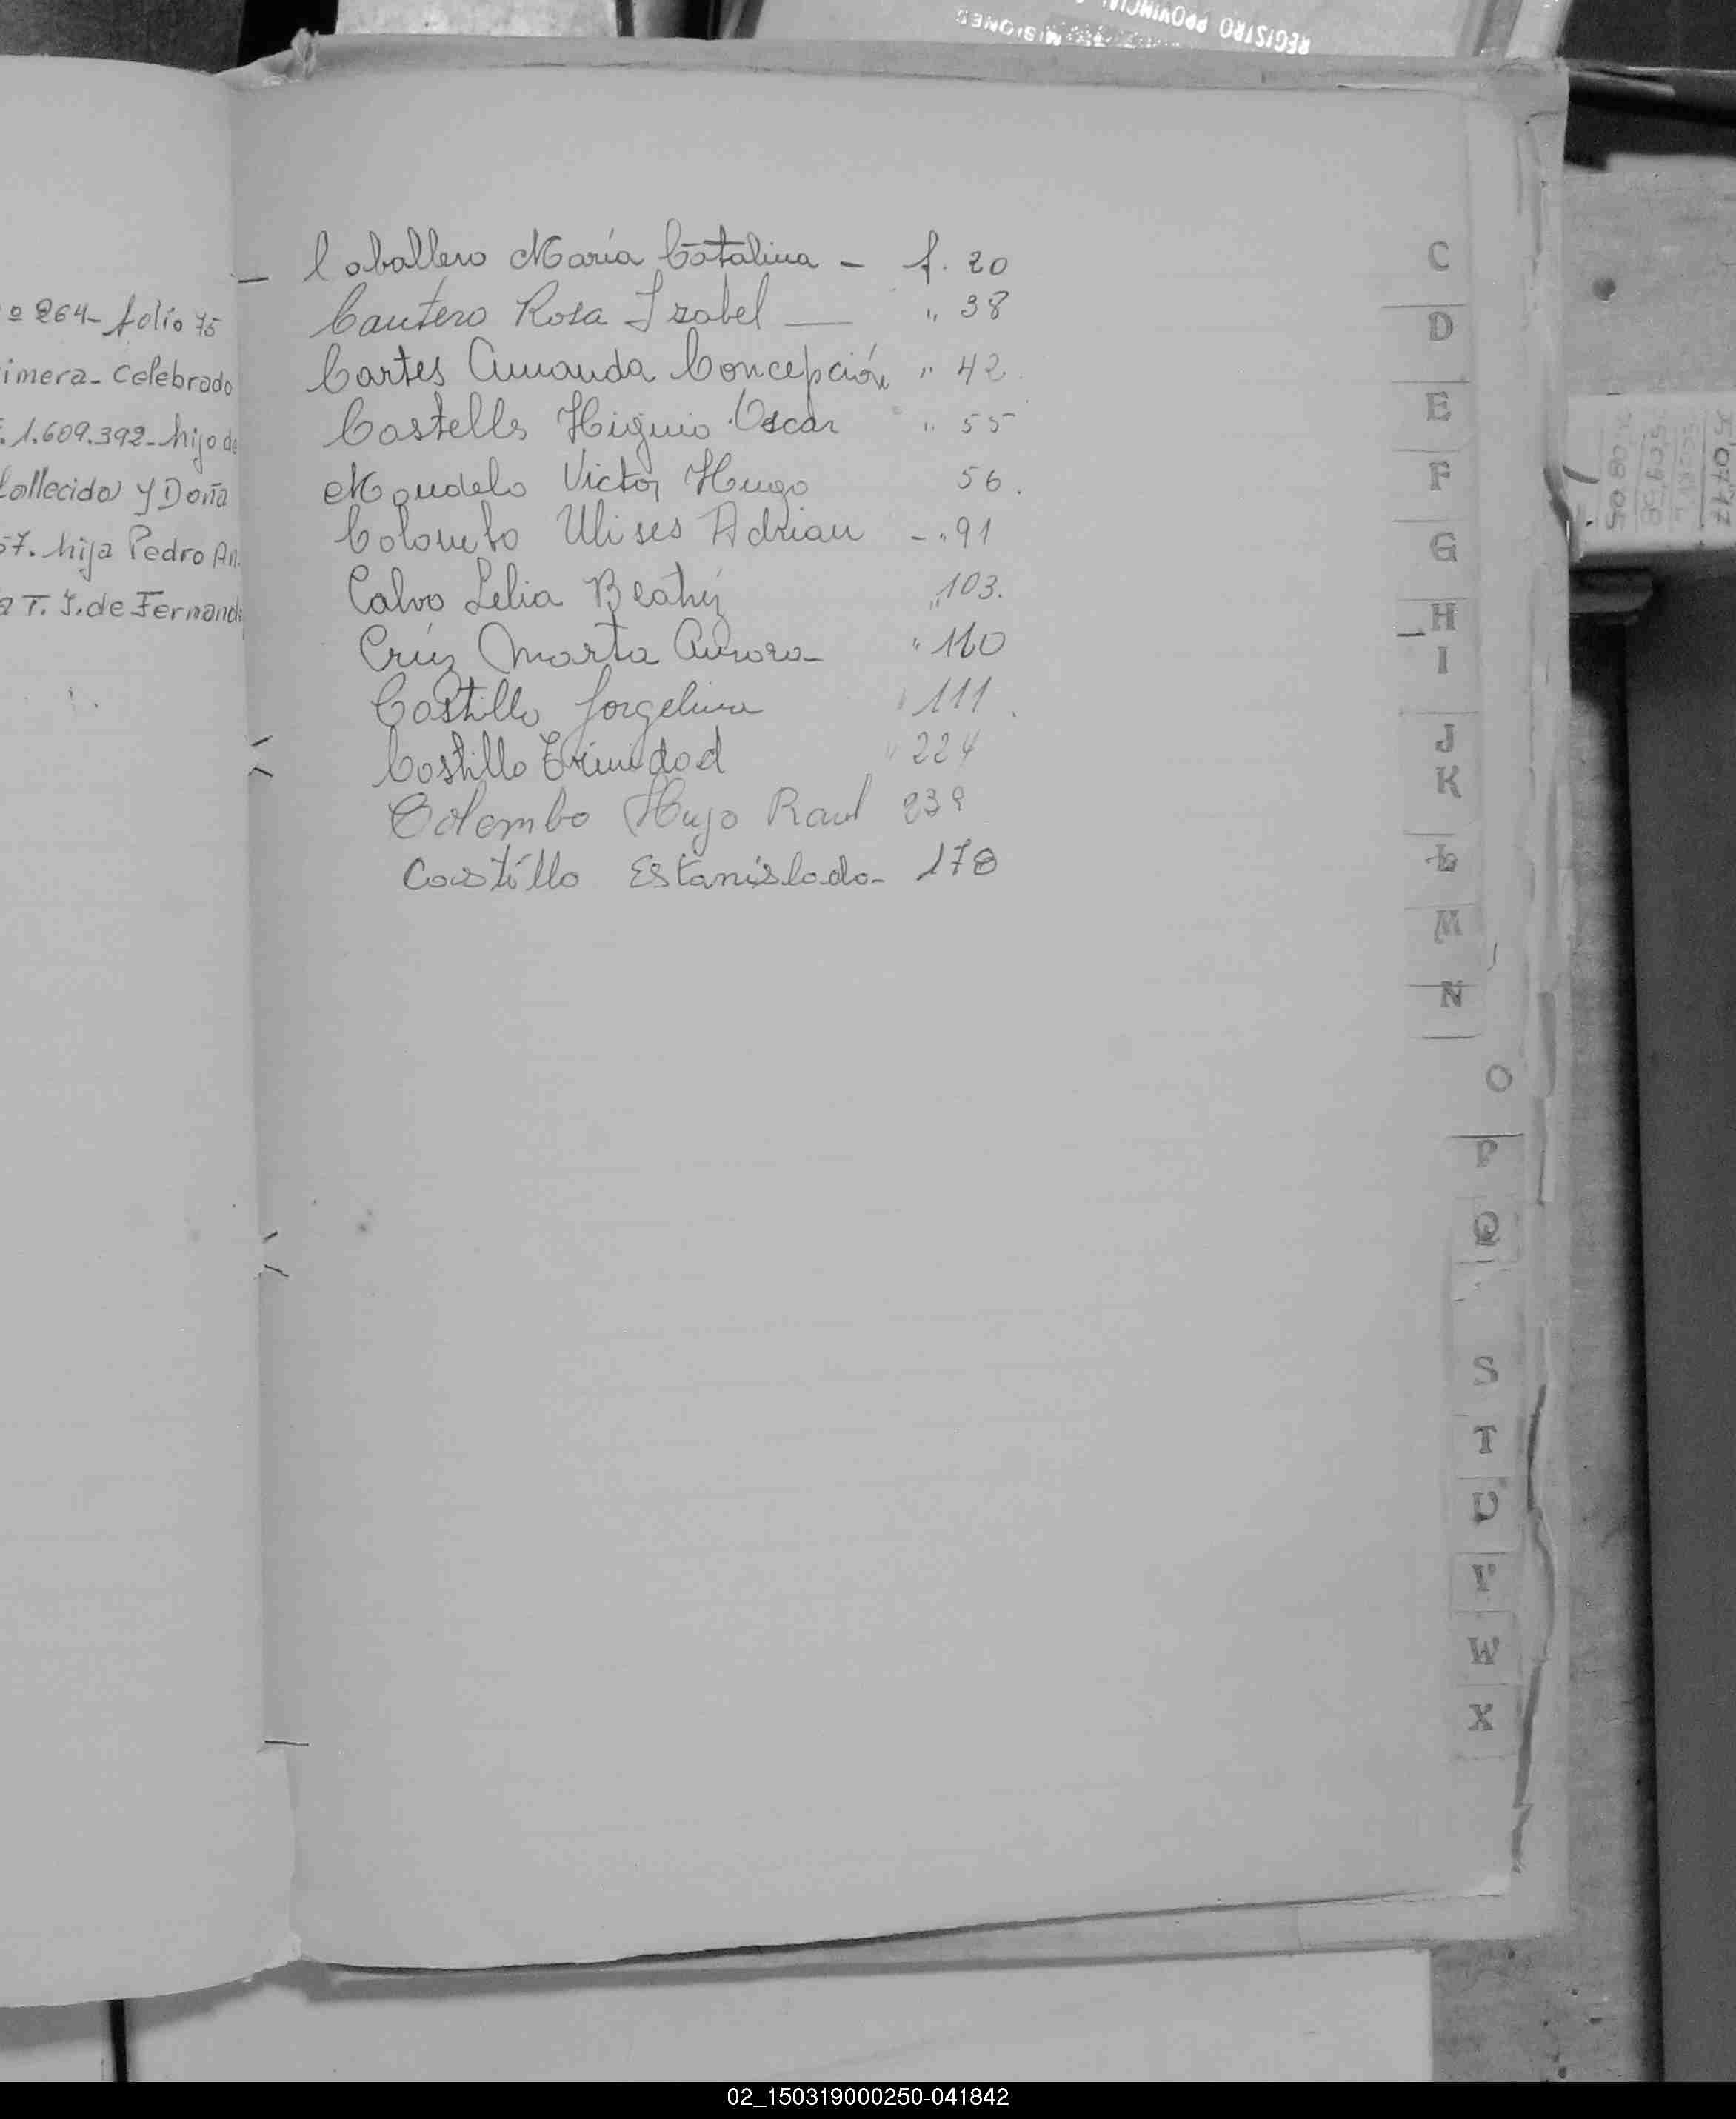 REGISTRO PROVINCIAL
MISIONES
º 264- folio 75
imera- celebrado
1.609.392- hijo de
fallecido) y Doña
57. hija Pedro An
a T. J. de Fernand
Caballero María Catalina - f. 20
Cantero Rosa Izabel — " 38
Cortes Amanda Concepción " 42
Castells Higinio Oscar " 55
Maudelo Victor Hugo 56.
Colombo Ulises Adrian - " 91
Calvo Lelia Beatriz " 103.
Cruz Marta Aurora - " 110
Costillo Jorgelina " 111
Costillo Trinidad " 224
Colombo Hugo Raul 239
Castillo Estanislada - 178
C
D
E
F
G
H
I
J
K
L
M
N
O
P
Q
S
T
U
V
W
X
02_150319000250-041842